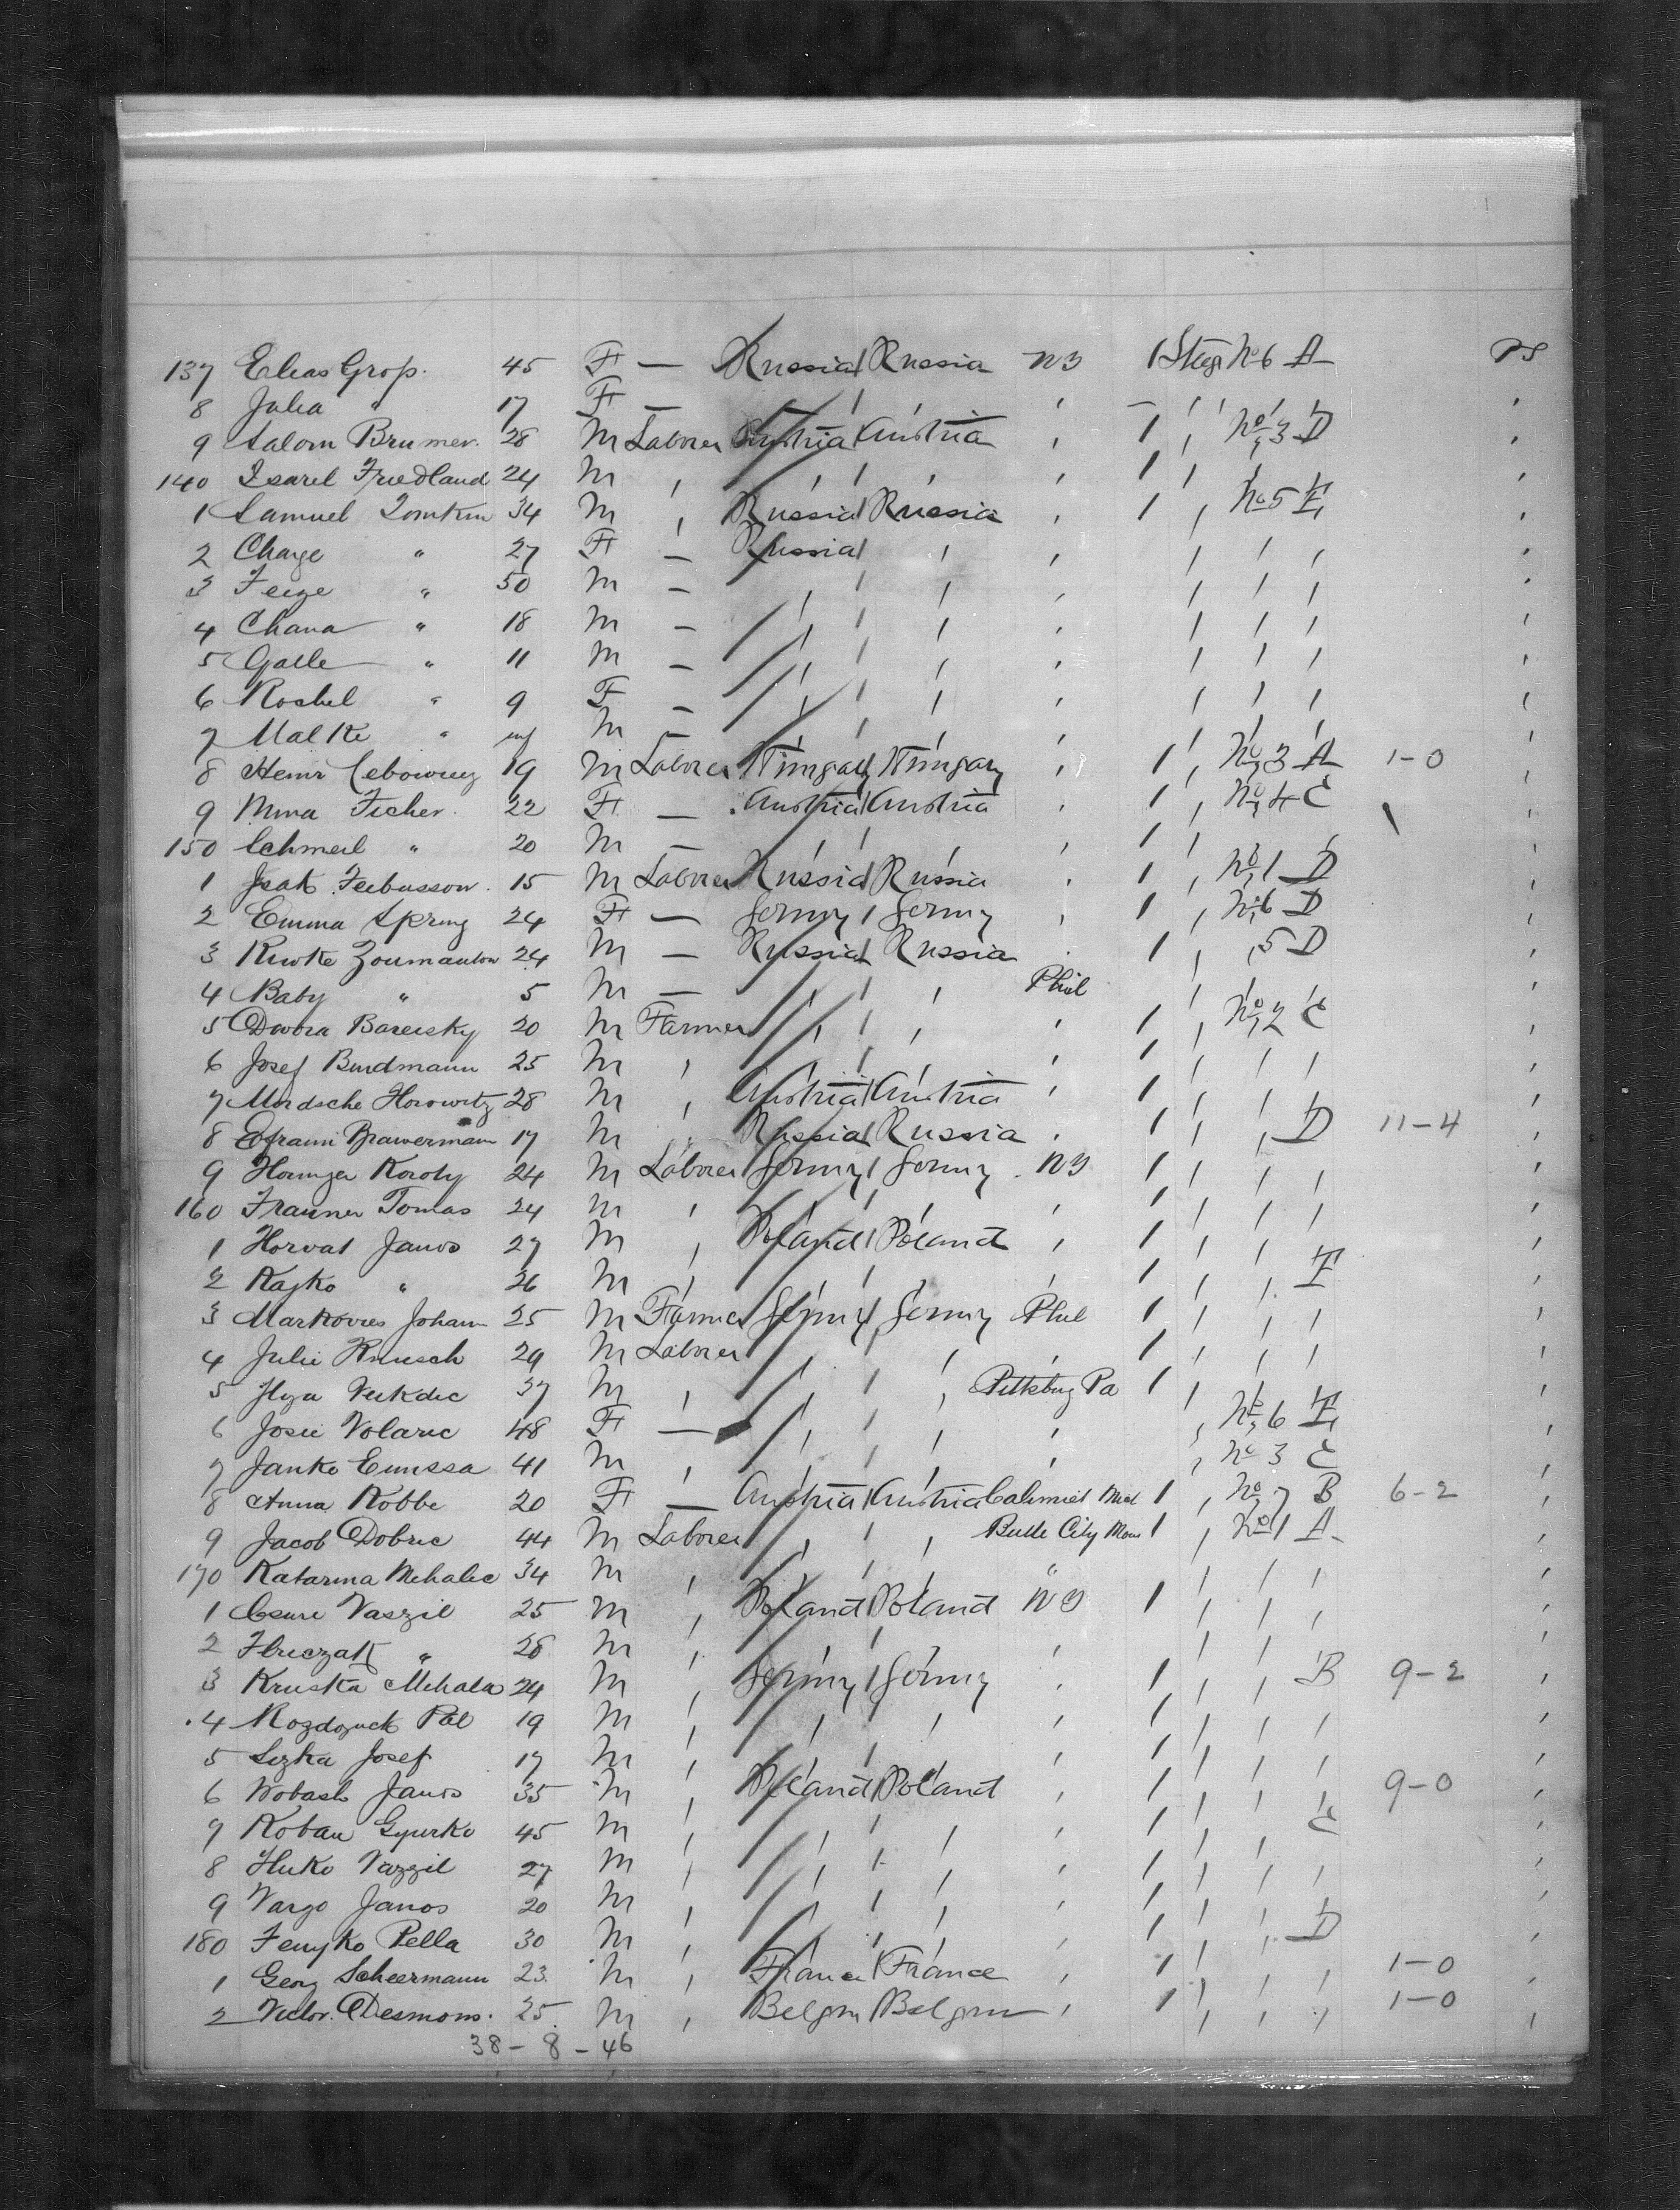 137 Elias Grop. 45 F — Russia Russia NY 1 Steg No 6 A PS
8 Julia " 17 F — ' ' ' — ' ' ' '
9 Salom Brumer. 28 M Laborer Austria Austria ' 1 ' No 3 D '
140 Isarel Friedland 24 M ' ' ' ' 1 ' ' ' '
1 Samuel Tomkin 34 M ' Russia Russia ' 1 ' No 5 E '
2 Chaye " 27 F — Russia ' ' ' ' ' '
3 Feige " 50 M — ' ' ' ' ' ' '
4 Chana " 18 M — ' ' ' ' ' ' '
5 Galle " 11 M — ' ' ' ' ' ' '
6 Roshel " 9 F — ' ' ' ' ' ' '
7 Malke " inf M — ' ' ' ' ' ' '
8 Henr Lebowicz 19 M Laborer Hungary Hungary ' 1 ' No 3 A 1-0 '
9 Mina Ficher. 22 F — Austria Austria ' 1 ' No 4 C '
150 Schmeil " 20 M — ' ' ' 1 ' ' ' '
1 Isak Feibusson. 15 M Laborer Russia Russia ' 1 ' No 1 D '
2 Emma Spring 24 F — Germy Germy ' 1 ' No 6 D '
3 Riwke 24 M — Russia Russia ' 1 ' 5 D '
4 Baby " 5 M — ' ' Phil ' ' ' '
5 Dwora Bareisky 20 M Farmer ' ' ' 1 ' No 2 C '
6 Josef Burdmann 25 M ' ' ' ' 1 ' ' ' '
7 Mordsche Horowitz 28 M ' Austria Austria ' 1 ' ' ' '
8 Efraim Brawermann 17 M " Russia Russia ' 1 ' ' D 11-4 '
9 Koroly 24 M Laborer Germy Germy NY 1 ' ' ' '
160 Frauner Tomas 24 M ' ' ' ' 1 ' ' ' '
1 Horvat Janos 27 M ' Poland Poland ' 1 ' ' ' '
2 Rajko " 26 M ' ' ' ' 1 ' ' E '
3 Markovics Johann 25 M Farmer Germy Germy Phil 1 ' ' ' '
4 Julii Knusch 29 M Laborer ' ' ' 1 ' ' ' '
5 Ilya Vukdic 37 M ' ' ' Pittsburg Pa 1 ' ' ' '
6 Josii Volaric 48 F — ' ' ' ' No 6 E '
7 Janko 41 M ' ' ' ' ' No 3 C '
8 Anna Kobbe 20 F — Austria Austria Calumet Mich 1 ' No 7 B 6-2 '
9 Jacob Dobric 44 M Laborer ' ' Butte City Mon 1 ' No 1 A '
170 Katarina Mehalic 34 M ' ' ' " ' ' ' '
1 Csure Vaszil 25 M ' Poland Poland NY 1 ' ' ' '
2 Hriczak " 28 M ' ' ' ' ' ' ' '
3 Kruska Mihala 24 M ' Germy Germy ' 1 ' ' B 9-2 '
4 Pal 19 M ' ' ' ' 1 ' ' ' '
5 Sezka Josef 17 M ' ' ' ' 1 ' ' ' '
6 Wobash Janos 35 M ' Poland Poland ' 1 ' ' ' 9-0 '
7 Koban Gyurko 45 M ' ' ' ' 1 ' ' C '
8 Huko Vazzil 27 M ' ' ' ' 1 ' ' ' '
9 Vargo Janos 20 M ' ' ' ' 1 ' ' ' '
180 Fenyko Pella 30 M ' ' ' ' 1 ' ' D '
1 Georg Scheermann 23. M ' France France ' 1 ' ' ' 1-0 '
2 Victor. Desmons. 25. M ' Belgm Belgm ' 1 ' ' ' 1-0 '
38 - 8 - 46